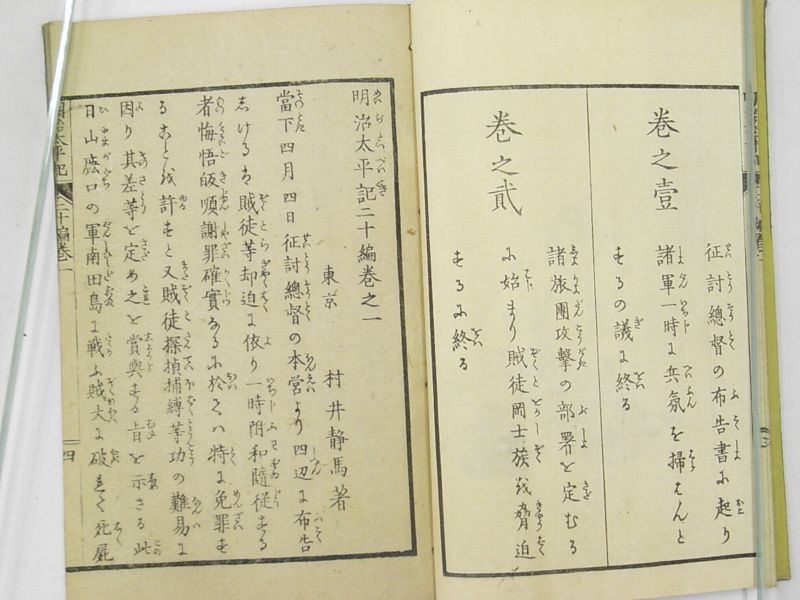 巻之壹
征討總督の布告書に起り
諸軍一時に兵氛を掃はんと
するの議に終る
巻之貳
諸旅團攻撃の部署を定むる
に始まり賊徒岡士族を脅迫
するに終る
明治太平記二十編巻之一
東京 村井静馬著
當下四月四日征討總督の本営より四辺に布告
しけるは賊徒等却迫に依り一時附和隨従する
者悔悟皈順謝罪確實なるに於ては特に免罪す
ることを許すと又賊徒探偵捕縛等功の難易に
因り其差等を定め之を賞與する旨を示さる此
日山鹿口の軍南田島に戦ふ賊大に破れて死屍
明治太平記 二十編巻一
四